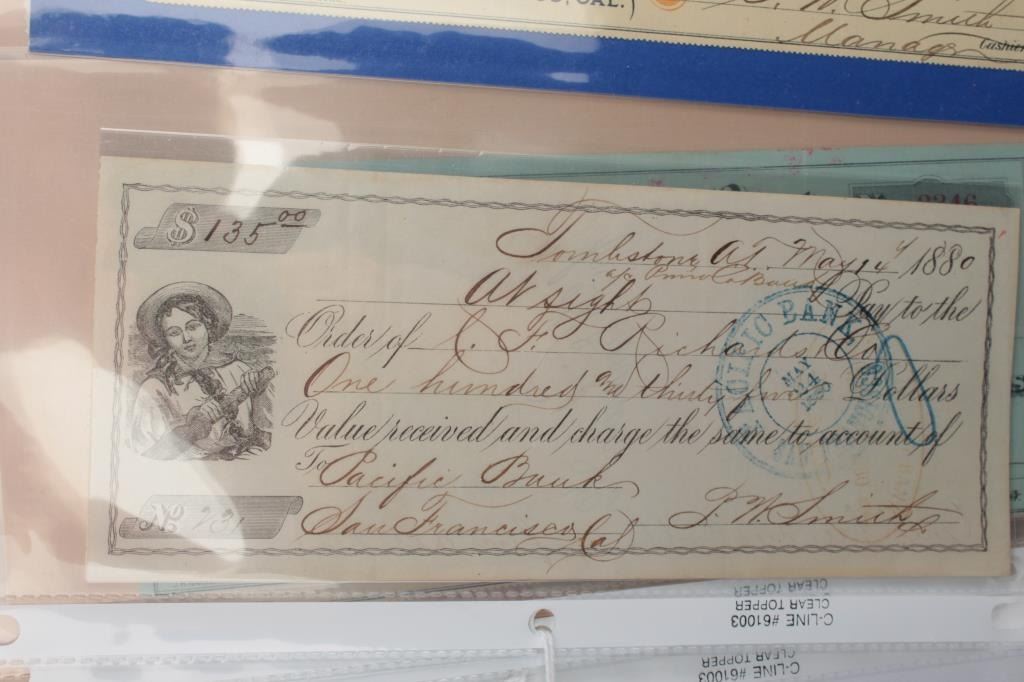 CAL.)
P. W. Smith
Manager Cashier
3346
$ 135.00
Tombstone A.T. May 14 1880
At sight Pay to the
Order of C. F. Richards & Co
One hundred and thirty five Dollars
Value received and charge the same to account of
To Pacific Bank
San Francisco Cal
P. W. Smith
No 231
BANK
MAY
24
C-LINE #61003
CLEAR TOPPER
CLEAR TOPPER
C-LINE #61003
CLEAR TOPPER